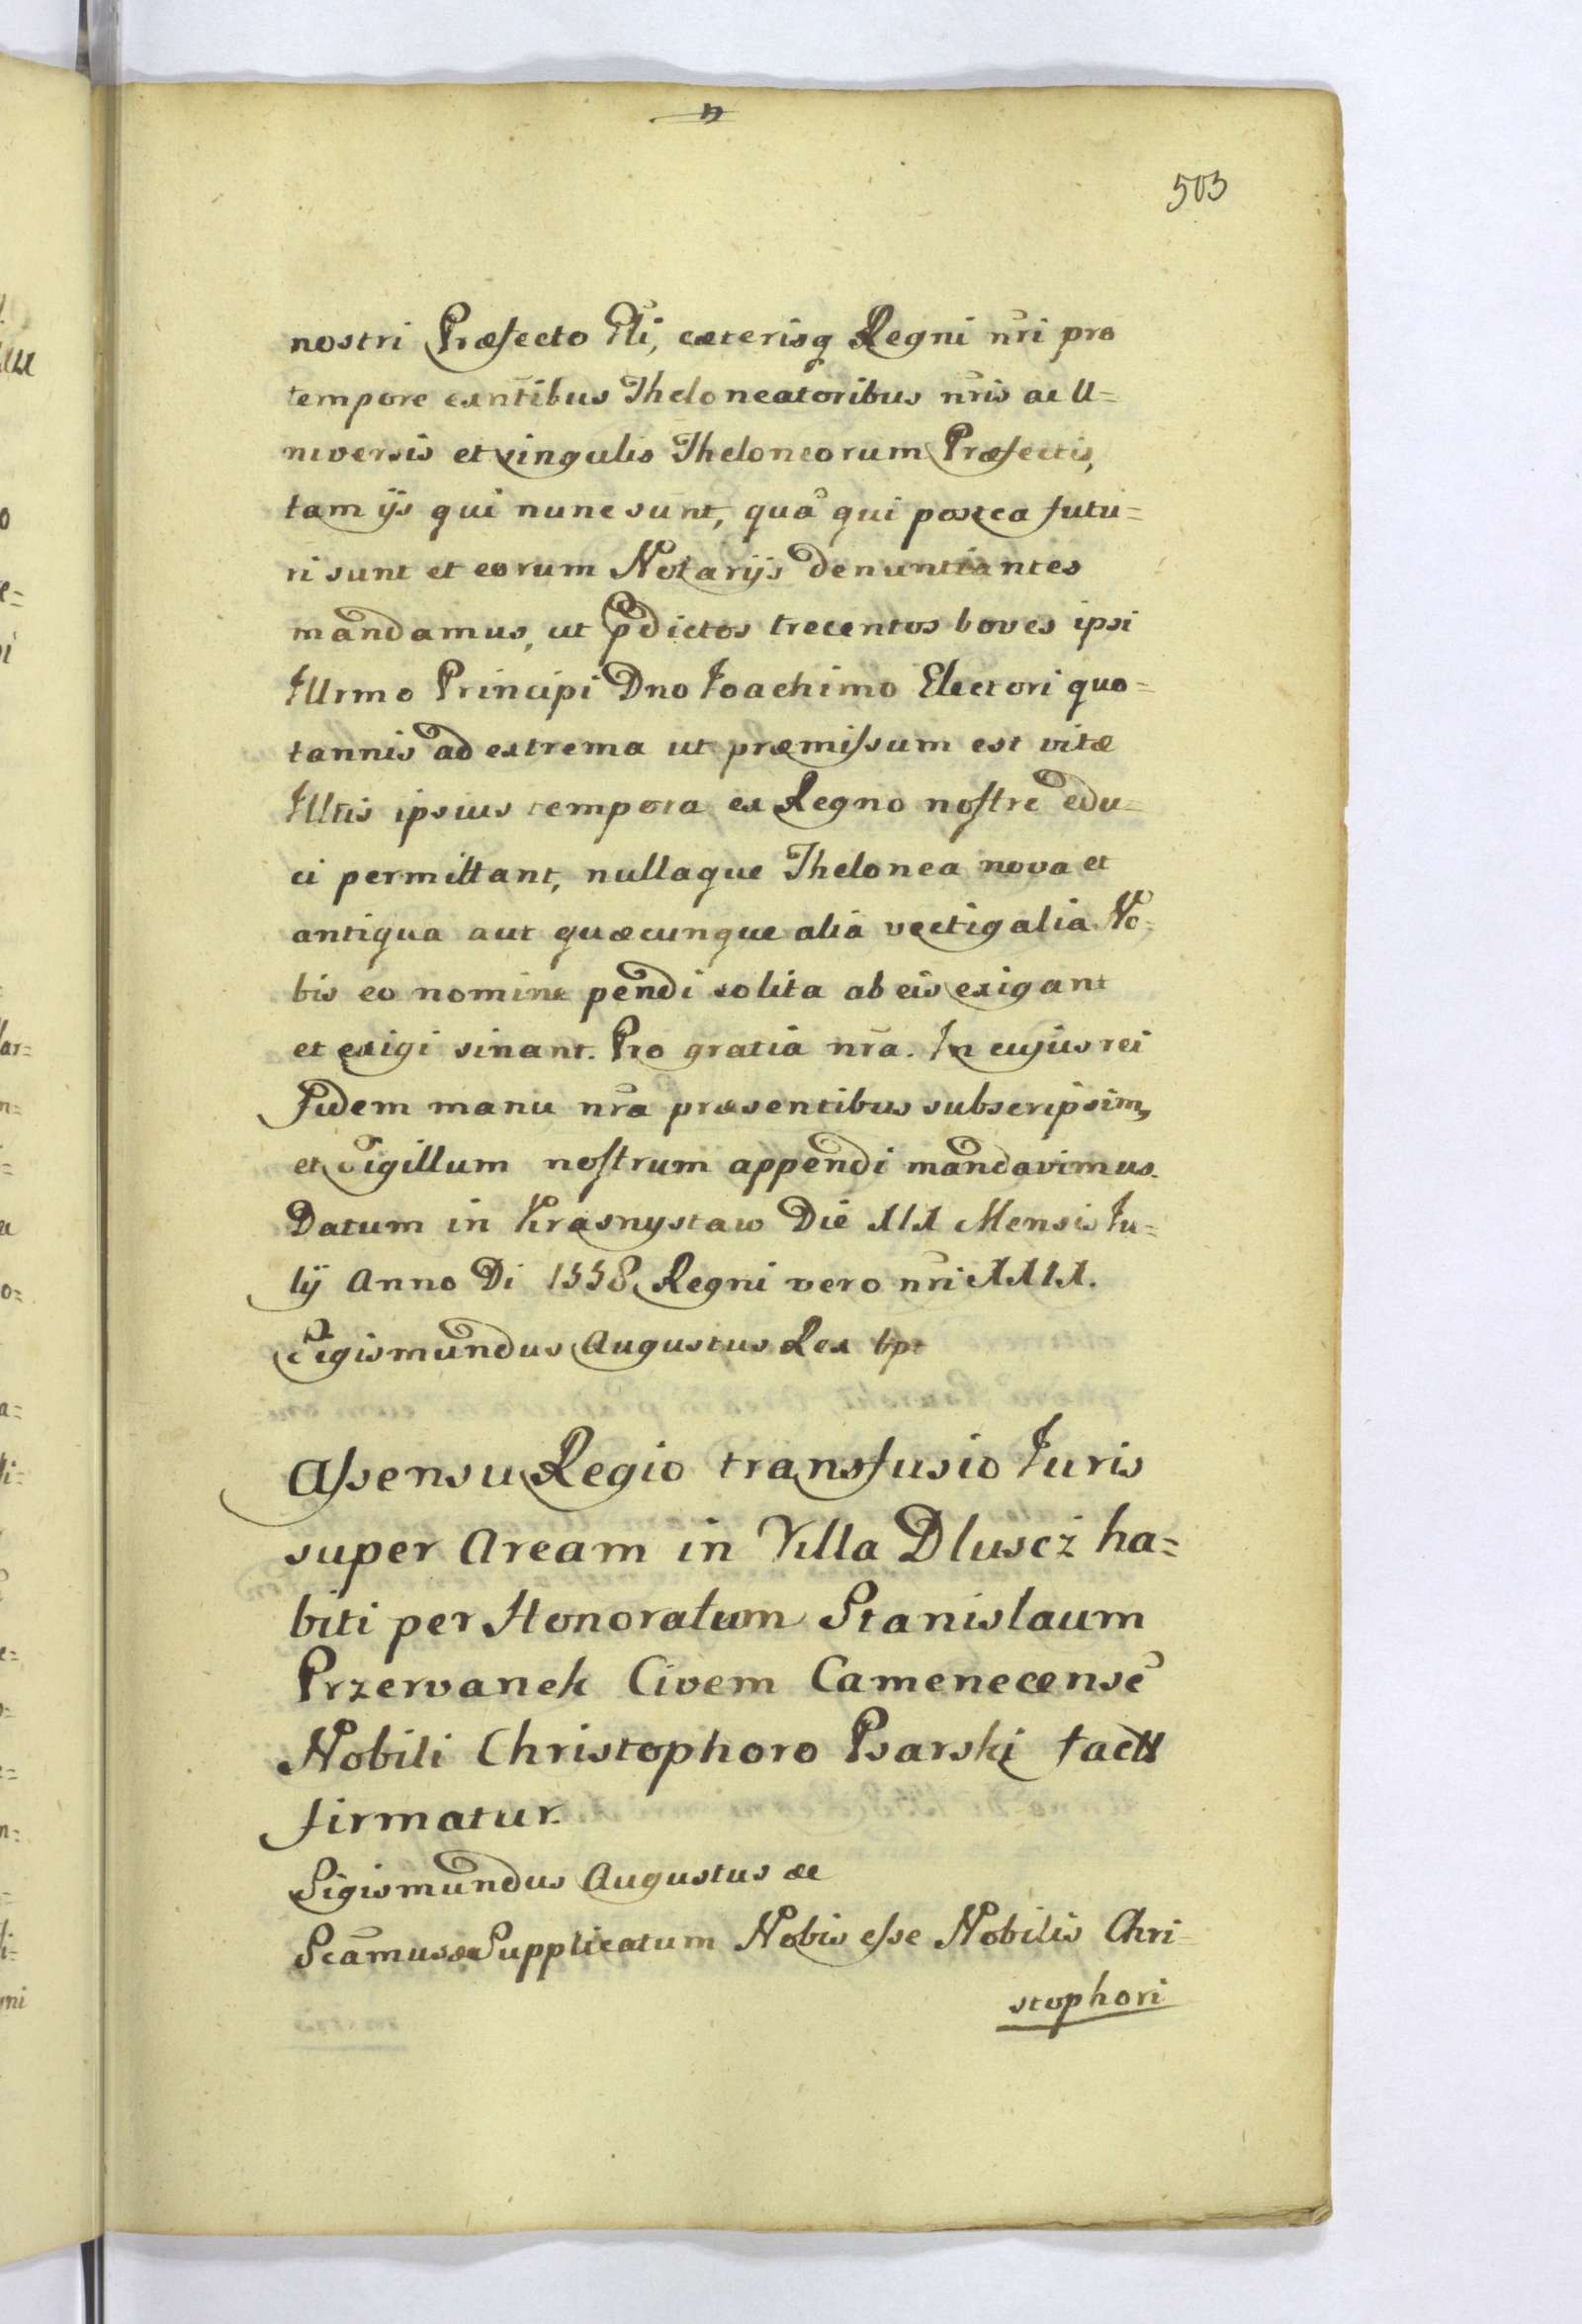 503
nostri Præfecto Gli, cæterisq Regni nr̃i pro
tempore exñtibus Theloneatoribus nr̃is ac U=
niversis et singulis Theloneorum Præfectis,
tam ijs qui nunc sunt, qua᷈ qui postea futu=
ri sunt et eorum Notarijs denuntiantes
mandamus, ut p̃dictos trecentos boves ipsi
Illrmo Principi Dno Joachimo Electori quo=
tannis ad extrema ut præmissum est vitæ
Illtis ipsius tempora ex Regno nostro edu=
ci permittant, nullaque Thelonea nova et
antiqua aut quæcunque alia vectigalia No=
bis eo nomine pendi solita ab eis exigant
et exigi sinant. Pro gratia nr̃a. In cujus rei
fidem manu nr̃a præsentibus subscripsim,
et Sigillum nostrum appendi mandavimus.
Datum in Krasnystaw Die XIX Mensis Ju=
lij Anno Di 1558 Regni vero nr̃i XXIX.
Sigismundus Augustus Rex
Assensu Regio transfusio Juris
super Aream in Villa Dluscz ha=
biti per Honoratum Stanislaum
Przerwanek Civem Camenecensẽ
Nobili Christophoro Psarski facta
firmatur.
Sigismundus Augustus &c
Scamus &a Supplicatum Nobis esse Nobilis Chri=
stophori